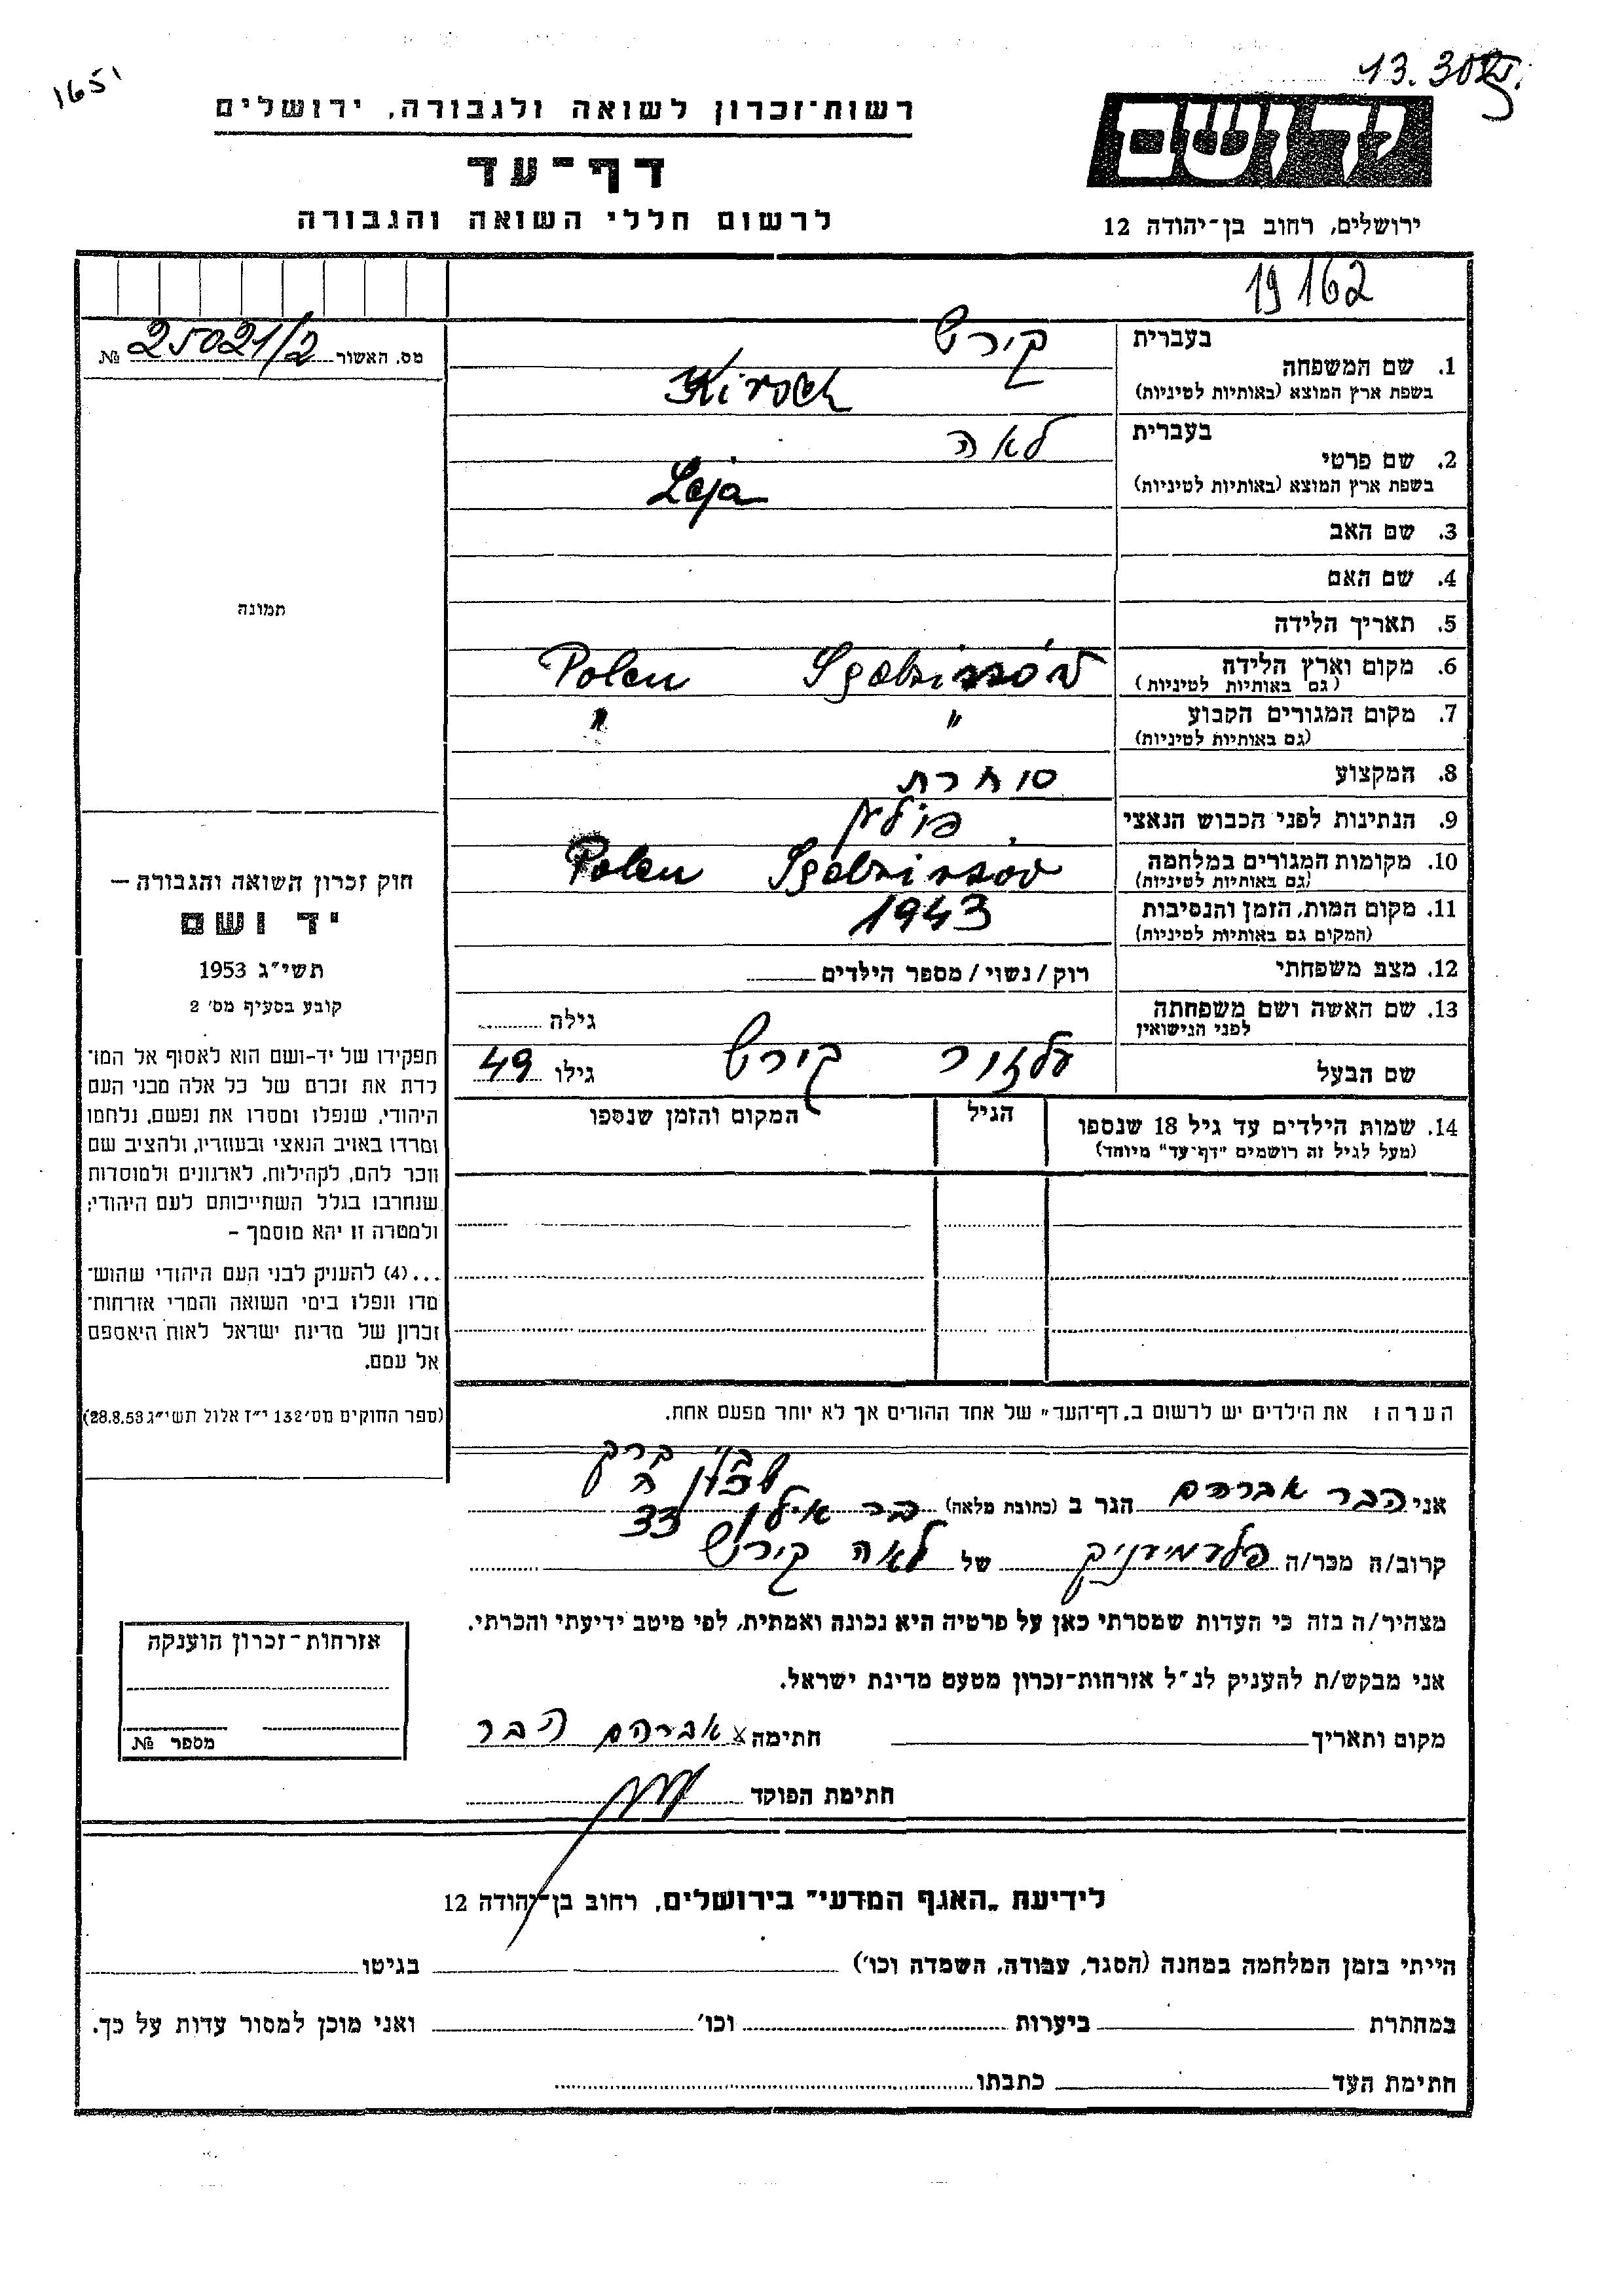 1651
13.30
רשות־זכרון לשואה ולגבורה, ירושלים
דף־עד
לרשום חללי השואה והגבורה
יד ושם
ירושלים, רחוב בן־יהודה 12
19162
מס. האשור 25021/2 №
בעברית קירש
1. שם המשפחה
בשפת ארץ המוצא (באותיות לטיניות) Kirsch
בעברית לאה
2. שם פרטי
בשפת ארץ המוצא (באותיות לטיניות) Leja
3. שם האב
4. שם האם
5. תאריך הלידה
6. מקום וארץ הלידה Polen
(גם באותיות לטיניות)
7. מקום המגורים הקבוע " "
(גם באותיות לטיניות)
8. המקצוע סוחרת
9. הנתינות לפני הכבוש הנאצי פולין
10. מקומות המגורים במלחמה Polen
(גם באותיות לטיניות)
11. מקום המות, הזמן והנסיבות 1943
(המקום גם באותיות לטיניות)
12. מצב משפחתי רוק/נשוי/מספר הילדים
13. שם האשה ושם משפחתה גילה
לפני הנישואין
שם הבעל קירש גילו 49
14. שמות הילדים עד גיל 18 שנספו הגיל המקום והזמן שנספו
(מעל לגיל זה רושמים "דף־עד" מיוחד)
תמונה
חוק זכרון השואה והגבורה –
יד ושם
תשי"ג 1953
קובע בסעיף מס' 2
תפקידו של יד־ושם הוא לאסוף אל המו־
לדת את זכרם של כל אלה מבני העם
היהודי, שנפלו ומסרו את נפשם, נלחמו
ומרדו באויב הנאצי ובעוזריו, ולהציב שם
וזכר להם, לקהילות, לארגונים ולמוסדות
שנחרבו בגלל השתייכותם לעם היהודי;
ולמטרה זו יהא מוסמך –
...(4) להעניק לבני העם היהודי שהוש־
מדו ונפלו בימי השואה והמרי אזרחות־
זכרון של מדינת ישראל לאות היאספם
אל עמם.
(ספר החוקים מס' 132 י"ז אלול תשי"ג 28.8.53)
הערה: את הילדים יש לרשום ב„דף־העד" של אחד ההורים אך לא יותר מפעם אחת.
בני ברק
אני הבר אברהם הגר ב (כתובת מלאה) בר אילן 33
קרוב/ה מכר/ה של לאה קירש
מצהיר/ה בזה כי העדות שמסרתי כאן על פרטיה היא נכונה ואמתית, לפי מיטב ידיעתי והכרתי.
אני מבקש/ת להעניק לנ"ל אזרחות־זכרון מטעם מדינת ישראל.
מקום ותאריך חתימה x אברהם הבר
חתימת הפוקד
אזרחות־זכרון הוענקה
מספר №
לידיעת „האגף המדעי" בירושלים, רחוב בן־יהודה 12
הייתי בזמן המלחמה במחנה (הסגר, עבודה, השמדה וכו') בגיטו
במחתרת ביערות וכו' ואני מוכן למסור עדות על כך.
חתימת העד כתבתו